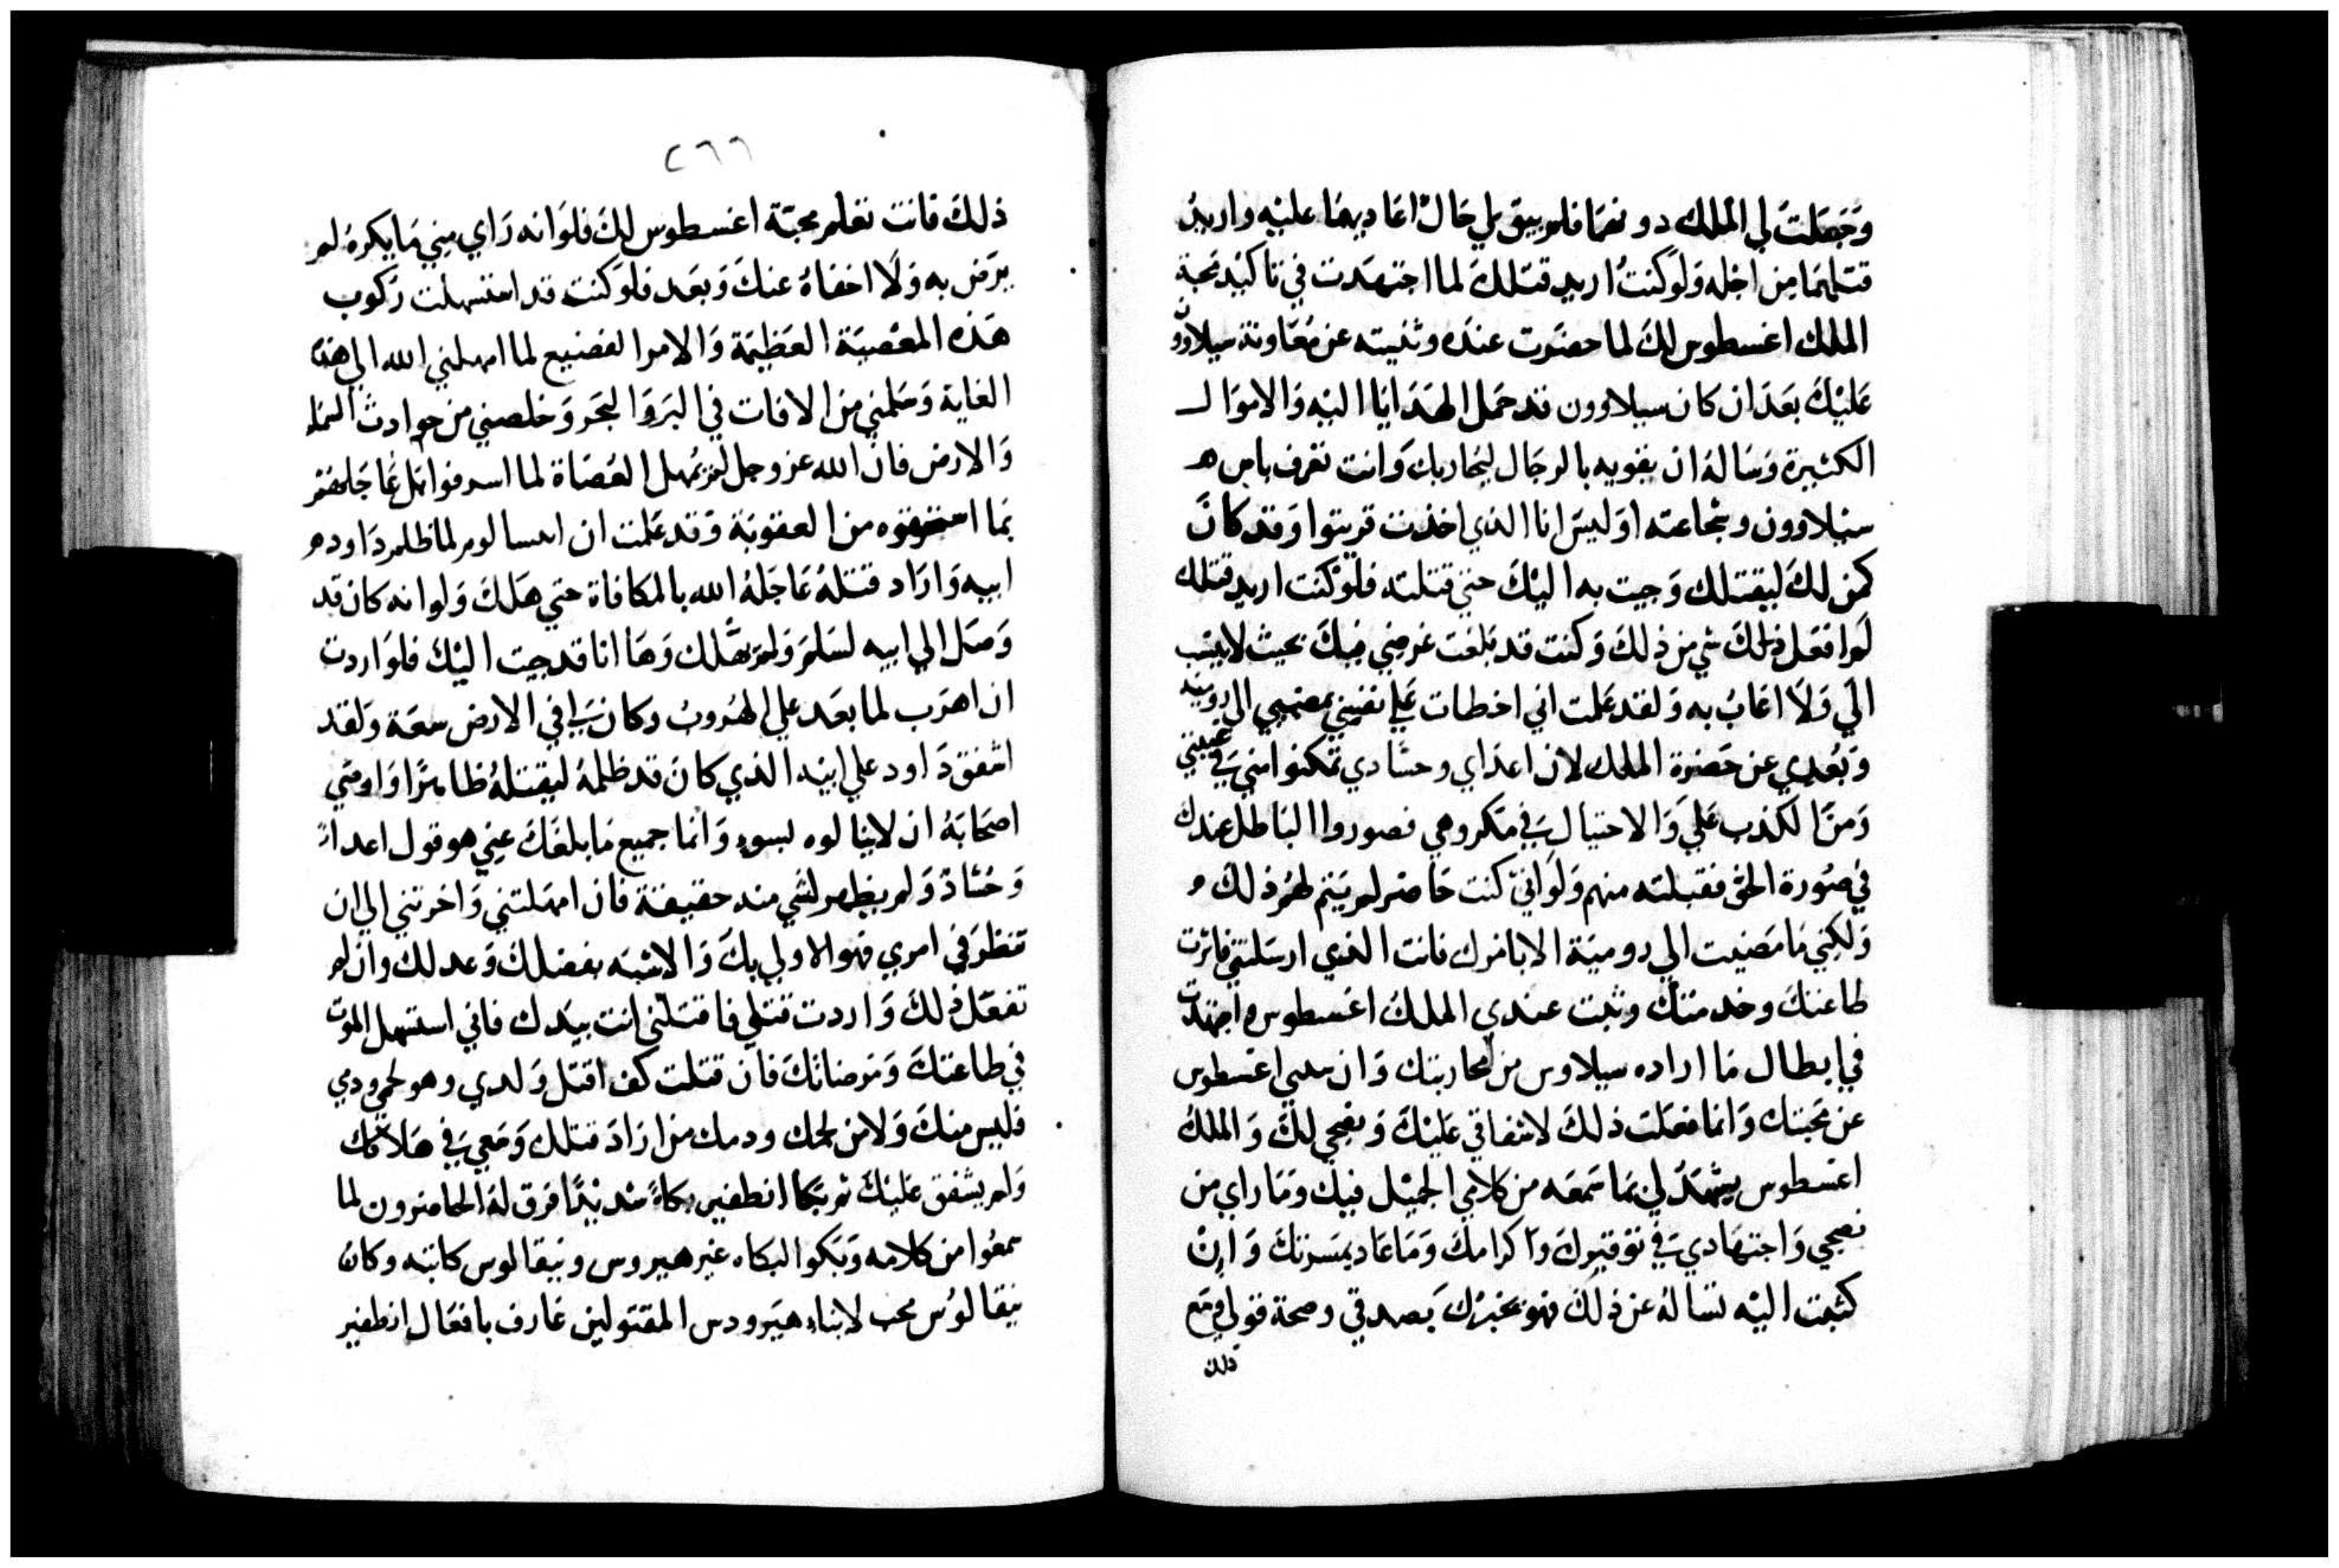 وَجَعَلتَ لي المَلك دونهما فلم يبق لي حَال اعَاديهما عليه واريدُ
قتلهمَا من اجله وَلوَ كنتُ اريد قتلكَ لما اجتهَدت في تاكيد محبة
الملك اغسطوس لكَ لما حضَرت عندَه وثنيته عن مُعَاونة سيلاوون
عَليْكَ بعَدَ ان كان سيلاوون قد حمَل الهدَايا اليْه وَالاموَالـ
الكثيرة وَسَالهُ ان يقويه بالرجَال ليحَاربك وَانت تعَرف باس هـ
سيْلاوون وشجاعته اوَليسَ انا الذي اخذت قرينوا وَقد كانَ
كمن لكَ ليقتلك وَجيت به اليْكَ حتي قتلته فلوَ كنت اريد قتلك
لم افعَل ذلكَ شي من ذلكَ وَكنت قد بَلغت غرضي فيكَ بحيث لا ينسب
الَي وَلاَ اعَابُ به وَلقد عَلمت اني اخطات عَلي نفسِي بمضيي الي روميه
وَبُعدي عن حَضرة الملك لان اعدَاي وحسَّادي تمكنوا مني في غيبتي
وَمن الكذب عَلي وَالاحتيال في مَكروهي فصوروا البَاطل عندك
في صُورة الحق فقبلته منهم وَلوَ انيّ كنت حَاضر لم يَتم لهُم ذلكَ
وَلكِني مَا مَضيت الي روميَة الا بامرك فانت الذي ارسَلتني فاثرت
طاعتكَ وخدمتكَ وثبت عندي الملكَ اغسطوس واجتهدت
في ابطال مَا اراده سيلاوس من محاربتك وَان اغسطوس
عن محَبتك وَانما فعَلت ذلكَ لاشفاقي عَليْكَ وَنصحي لكَ وَالملكُ
اغسطوس يشهَدُ لي بمَا سَمعَه من كلامي الجميْل فيك وَمَا راي من
نصحي وَاجتهَادي في توقيرك واكرامكَ وَمَا عَاد بمسَرتكَ وَانْ
كتبت اليْه تسَالهُ عن ذلكَ فهو يخبرْك بَصدقي وصحة قولي وَمَع
ذلك
٢٦٦
ذلكَ فانت تعَلم محبّة اغسطوس لكَ فلوَ انه رَاي مِني مَا يكرهُ لم
يرَض به وَلاَ اخفاهُ عنكَ وَبعَد فلوَ كنت قد استسهلت رَكوب
هَذه المعْصيَة العَظيمَة وَالامر الفضيع لما امهلني الله الي هَذه
الغاية وَسَلمني من الافات في البَر وَالبحَر وَخلصني من حوادث السَماء
وَالارض فان الله عز وجل لم يُمهل العُصَاة لما اسرفوا بَل عَاجَلهُم
بمَا استحقوه من العقوبَة وَقد عَلمت ان ابيسالوم لما ظلم دَاود
ابيه وَارَاد قتلهُ عَاجَلهُ الله بالمكافاة حتي هَلكَ وَلو انه كان قد
وَصَل الي ابيه لسَلمَ وَلم يَهَلك وَهَا انا قد جيت اليْكَ فلوَ اردت
ان اهرَب لما بعَد علي الهُروبُ وكان لي في الارض سعَة وَلقد
اشفق دَاود علي ابيْنه الذي كانَ قد ظلمهُ ليقتلهُ ظالمًا وَاوصَي
اصحَابَهُ ان لا ينالوه بسوءٍ وَانما جميع مَا بلغَكَ عني هو قول اعداءً
وَحُسَّاد وَلم يظهر لشي منه حقيقة فان امهَلتني وَاخرتني الي ان
تنظرَ في امري فهو الاولي بكَ وَالاشبَه بفضلكَ وَعدلك وان لم
تفعَل ذلكَ وَاردت قتلي فاقتلني انت بيَدك فاني استسهل الموَت
في طاعتكَ وَمَرضاتكَ فان قتلت كف اقتل وَلدي وهو لحمي ودمي
فليس منكَ وَلا من لحمك ودمك من ارَادَ قتلك وَسَعي في هَلاكك
وَلم يشفق عَليْكَ ثم بَكا انطفير بكاءً شديْدًا فرق لهُ الحَاضرون لما
سمعُوا من كلامه وَبَكوا لبكاه غير هيروس ونيقالوس كاتبَه وكانَ
نيقالوُس محب لابنَاء هيَرودس المقتولين عَارف بافعَال انطفير